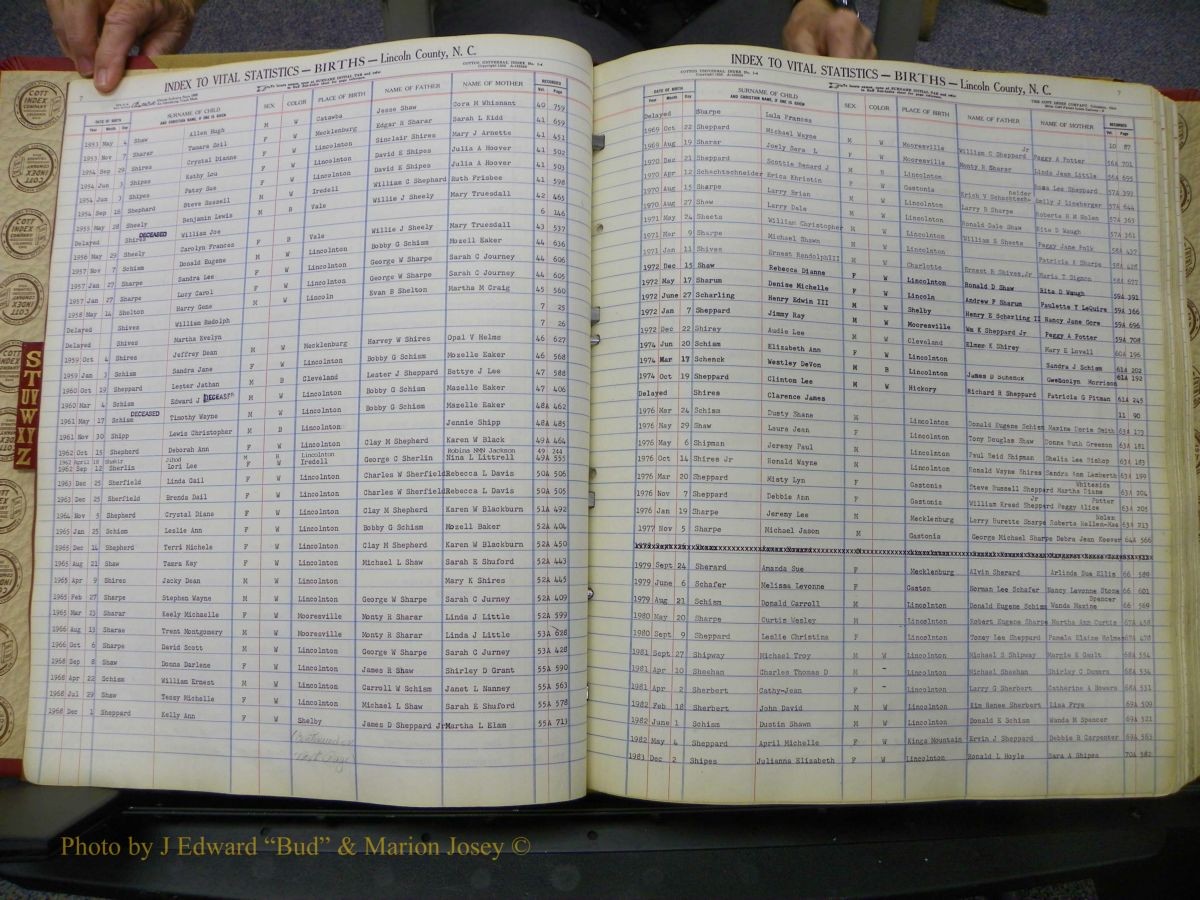 INDEX TO VITAL STATISTICS — BIRTHS — Lincoln County, N. C.
DATE OF BIRTH SURNAME OF CHILD SEX COLOR PLACE OF BIRTH NAME OF FATHER NAME OF MOTHER RECORDED
Year Month Day AND CHRISTIAN NAME, IF ONE IS GIVEN Vol. Page
1953 May 4 Shaw Allen Hugh M W Catawba Jesse Shaw Cora M Whisnant 40 759
1953 Nov 7 Sharar Tamara Gail F W Mecklenburg Edgar R Sharar Sarah L Kidd 41 659
1954 Sep 29 Shires Crystal Dianne F W Lincolnton Sinclair Shires Mary J Arnette 41 451
1954 Jun 3 Shipes Kathy Lou F W Lincolnton David E Shipes Julia A Hoover 41 502
1954 Jun 3 Shipes Patsy Sue F W Lincolnton David E Shipes Julia A Hoover 41 503
1954 Sep 18 Shephard Steve Russell M W Iredell William C Shephard Ruth Frisbee 41 598
1955 May 28 Sheely Benjamin Lewis M B Vale Willie J Sheely Mary Truesdall 42 465
Delayed Shires DECEASED William Joe 6 146
1956 May 29 Sheely Carolyn Frances F B Vale Willie J Sheely Mary Truesdall 43 537
1957 Nov 7 Schism Donald Eugene M W Lincolnton Bobby G Schism Mozell Eaker 44 636
1957 Jan 27 Sharpe Sandra Lee F W Lincolnton George W Sharpe Sarah C Journey 44 606
1957 Jan 27 Sharpe Lucy Carol F W Lincolnton George W Sharpe Sarah C Journey 44 605
1958 May 14 Shelton Harry Gene M W Lincoln Evan B Shelton Martha M Craig 45 560
Delayed Shives William Rudolph 7 25
Delayed Shives Martha Evelyn 7 26
1959 Oct 4 Shires Jeffrey Dean M W Mecklenburg Harvey W Shires Opal V Helms 46 627
1959 Jan 3 Schism Sandra Jane F W Lincolnton Bobby G Schism Mozelle Eaker 46 568
1960 Oct 19 Sheppard Lester Jathan M B Cleveland Lester J Sheppard Bettye J Lee 47 588
1960 Mar 4 Schism Edward J M W Lincolnton Bobby G Schism Mazelle Eaker 47 406
1961 May 17 Schism DECEASED Timothy Wayne M W Lincolnton Bobby G Schism Mozelle Eaker 48A 462
1961 Nov 30 Shipp Lewis Christopher M B Lincolnton Jennie Shipp 48A 485
1962 Oct 15 Shepherd Deborah Ann F W Lincolnton Clay M Shepherd Karen W Black 49A 464
1962 April 18 Shakir Jihad M B Lincolnton Robina NMN Jackson 49 244
1962 Sep 12 Sherlin Lori Lee F W Iredell George C Sherlin Nina L Littrell 49A 555
1963 Dec 25 Sherfield Linda Gail F W Lincolnton Charles W Sherfield Rebecca L Davis 50A 506
1963 Dec 25 Sherfield Brenda Dail F W Lincolnton Charles W Sherfield Rebecca L Davis 50A 505
1964 Nov 5 Shepherd Crystal Diane F W Lincolnton Clay M Shepherd Karen W Blackburn 51A 492
1965 Jan 25 Schism Leslie Ann F W Lincolnton Bobby G Schism Mozell Baker 52A 404
1965 Dec 14 Shepherd Terri Michele F W Lincolnton Clay M Shepherd Karen W Blackburn 52A 450
1965 Aug 21 Shaw Tamra Kay F W Lincolnton Michael L Shaw Sarah E Shuford 52A 443
1965 Apr 9 Shires Jacky Dean M W Lincolnton Mary K Shires 52A 445
1965 Feb 27 Sharpe Stephen Wayne M W Lincolnton George W Sharpe Sarah C Jurney 52A 409
1965 Mar 23 Sharar Keely Michaelle F W Mooresville Monty R Sharar Linda J Little 52A 599
1966 Aug 13 Sharae Trent Montgomery M W Mooresville Monty R Sharar Linda J Little 53A 628
1966 Oct 6 Sharpe David Scott M W Lincolnton George W Sharpe Sarah C Jurney 53A 428
1968 Sep 8 Shaw Donna Darlene F W Lincolnton James R Shaw Shirley D Grant 55A 590
1968 Apr 22 Schism William Ernest M W Lincolnton Carroll W Schism Janet L Nanney 55A 563
1968 Jul 29 Shaw Tessy Michelle F W Lincolnton Michael L Shaw Sarah E Shuford 55A 578
1968 Dec 1 Sheppard Kelly Ann F W Shelby James D Sheppard Jr Martha L Elam 55A 713
S
T
U
V
W
X
Y
Z
INDEX TO VITAL STATISTICS — BIRTHS — Lincoln County, N. C.
DATE OF BIRTH SURNAME OF CHILD SEX COLOR PLACE OF BIRTH NAME OF FATHER NAME OF MOTHER RECORDED
Year Month Day AND CHRISTIAN NAME, IF ONE IS GIVEN Vol. Page
Delayed Sharpe Lula Frances 10 87
1969 Oct 22 Sheppard Michael Wayne M W Mooresville William C Sheppard Jr Peggy A Potter 56A 701
1969 Aug 19 Sharar Mooresville Monty R Sharar Linda Jean Little 56A 695
1970 Dec 21 Sheppard Scottie Renard J M B Lincolnton Roma Lee Sheppard 57A 393
1970 Apr 12 Schachtschneider Erica Khristin F W Gastonia
1970 Aug 15 Sharpe Larry Brian M W Lincolnton Larry D Sharpe Roberta H M Nolen 57A 363
1970 Aug 27 Shaw Larry Dale M W Lincolnton Ronald Dale Shaw Rita D Waugh 57A 361
1971 May 24 Sheets William Christopher M W Lincolnton William S Sheets Peggy Jane Polk
1971 Mar 9 Sharpe Michael Shawn M W Lincolnton Patricia K Sharpe
1971 Jan 11 Shives Ernest Randolph III M W Charlotte Ernest R Shives, Jr Maria T Sigmon
1972 Dec 15 Shaw Rebecca Dianne F W Lincolnton Ronald D Shaw Rita D Waugh 59A 391
1972 May 17 Sharum Denise Michelle F W Lincoln Andrew F Sharum Paulette Y LeQuire 59A 366
1972 June 27 Scharling Henry Edwin III M W Shelby Henry E Scharling II Nancy Jane Gore 59A 696
1972 Jan 7 Sheppard Jimmy Ray M W Mooresville Wm K Sheppard Jr Peggy A Potter 59A 708
1972 Dec 22 Shirey Audie Lee M W Cleveland Elmer K Shirey Mary E Lovell 60A 196
1974 Jun 20 Schism Elizabeth Ann F W Lincolnton Sandra J Schism 61A 202
1974 Mar 17 Schenck Westley DeVon M B Lincolnton James D Schenck Gwendolyn Morrison 61A 192
1974 Oct 19 Sheppard Clinton Lee M W Hickory Richard R Sheppard Patricia G Pitman 61A 245
Delayed Shires Clarence James 11 90
1976 Mar 24 Schism Dusty Shane M Lincolnton Donald Eugene Schism Maxine Doris Smith 63A 173
1976 May 29 Shaw Laura Jean F Lincolnton Tony Douglas Shaw Donna Ruth Greeson 63A 181
1976 May 6 Shipman Jeremy Paul M Lincolnton Paul Reid Shipman Shelia Lee Bishop 63A 183
1976 Oct 14 Shires Jr Ronald Wayne M Lincolnton Ronald Wayne Shires Sandra Ann Lamberth 63A 199
1976 Mar 20 Sheppard Misty Lyn F Gastonia Steve Russell Sheppard Martha Diane Whitesids 63A 204
1976 Nov 7 Sheppard Debbie Ann F Gastonia William Kreed Sheppard Jr Peggy Alice Potter 63A 205
1976 Jan 19 Sharpe Jeremy Lee M Mecklenburg Larry Durette Sharpe Roberta Hellen-Mae Nolen 63A 213
1977 Nov 5 Sharpe Michael Jason M Gastonia George Michael Sharpe Debra Jean Keever 64A 566
1979 Sept 24 Sherard Amanda Sue F Mecklenburg Alvin Sherard Arlinda Sue Ellis 66 589
1979 June 6 Schafer Melissa Levonne F Gaston Norman Lee Schafer Nancy Levonne Stone 66 601
1979 Aug 21 Schism Donald Carroll M Lincolnton Donald Eugene Schism Wanda Maxine Spencer 66 569
1980 May 20 Sharpe Curtis Wesley M Lincolnton Robert Eugene Sharpe Martha Ann Curtis 67A 458
1980 Sept 9 Sheppard Leslie Christina F Lincolnton Toney Lee Sheppard Pamela Elaine Holmes 67A 470
1981 Sept 27 Shipway Michael Troy M W Lincolnton Michael S Shipway Margie E Gault 68A 554
1981 Apr 10 Sheehan Charles Thomas D M - Lincolnton Michael Sheehan Shirley C Dumars 68A 534
1981 Apr 2 Sherbert Cathy-Jean F W Lincolnton Larry G Sherbert Catherine A Bowers 68A 531
1982 Feb 18 Sherbert John David M W Lincolnton Kim Renee Sherbert Lisa Frye 69A 509
1982 June 1 Schism Dustin Shawn M W Lincolnton Donald E Schism Wanda M Spencer 69A 521
1982 May 4 Sheppard April Michelle F W Kings Mountain Ervin J Sheppard Debbie R Carpenter 69A 563
1983 Dec 2 Shipes Julianna Elizabeth F W Lincolnton Ronald L Hoyle Sara A Shipes 70A 582
Photo by J Edward “Bud” & Marion Josey ©